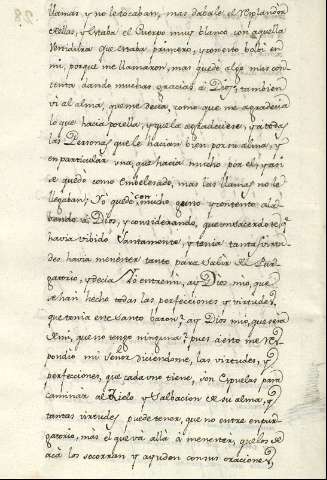 llamas, y no le tocaban, mas dabale el resplandor
dellas, y estaba el cuerpo muy blanco con aquella
vestidura que estaba primero, y con esto bolbi en
mi, porque me llamaron, mas quedé algo mas con-
tenta dando muchas gracias á Dios; tambien
vi al alma, que me decia, como que me agradecia
lo que hacia por ello, y que la agradeciere, y a todas
las Personas que le hacian bien por su alma, y
en particular una, que hacia mucho por el; y asi
se quedó como embelesado, mas las llamas no le
llegaban; Yo quedé con mucho gozo y contento ala-
bando á Dios, y considerando, que un sacerdote q.e
havia vibido santamente, y tenia tanta virtu-
des havia menester tanto para salir del Pur-
gatorio, y decia Yo entre mi, ay Dios mio, que
se han hecho todas las perfecciones y virtudes,
que tenia este Santo baron? ay Dios mio, que sera
de mi, que no tengo ninguna? pues a esto me res-
pondio mi Señor diciendome, las virtudes, y
perfecciones, que cada uno tiene, son espuelas para
caminar al Zielo y salbacion de su alma, y
tantas virtudes puede tener, que no entre en pur-
gatorio, mas el que vá allá á menester, que los de
acá los socorran y ayuden con sus oraciones,